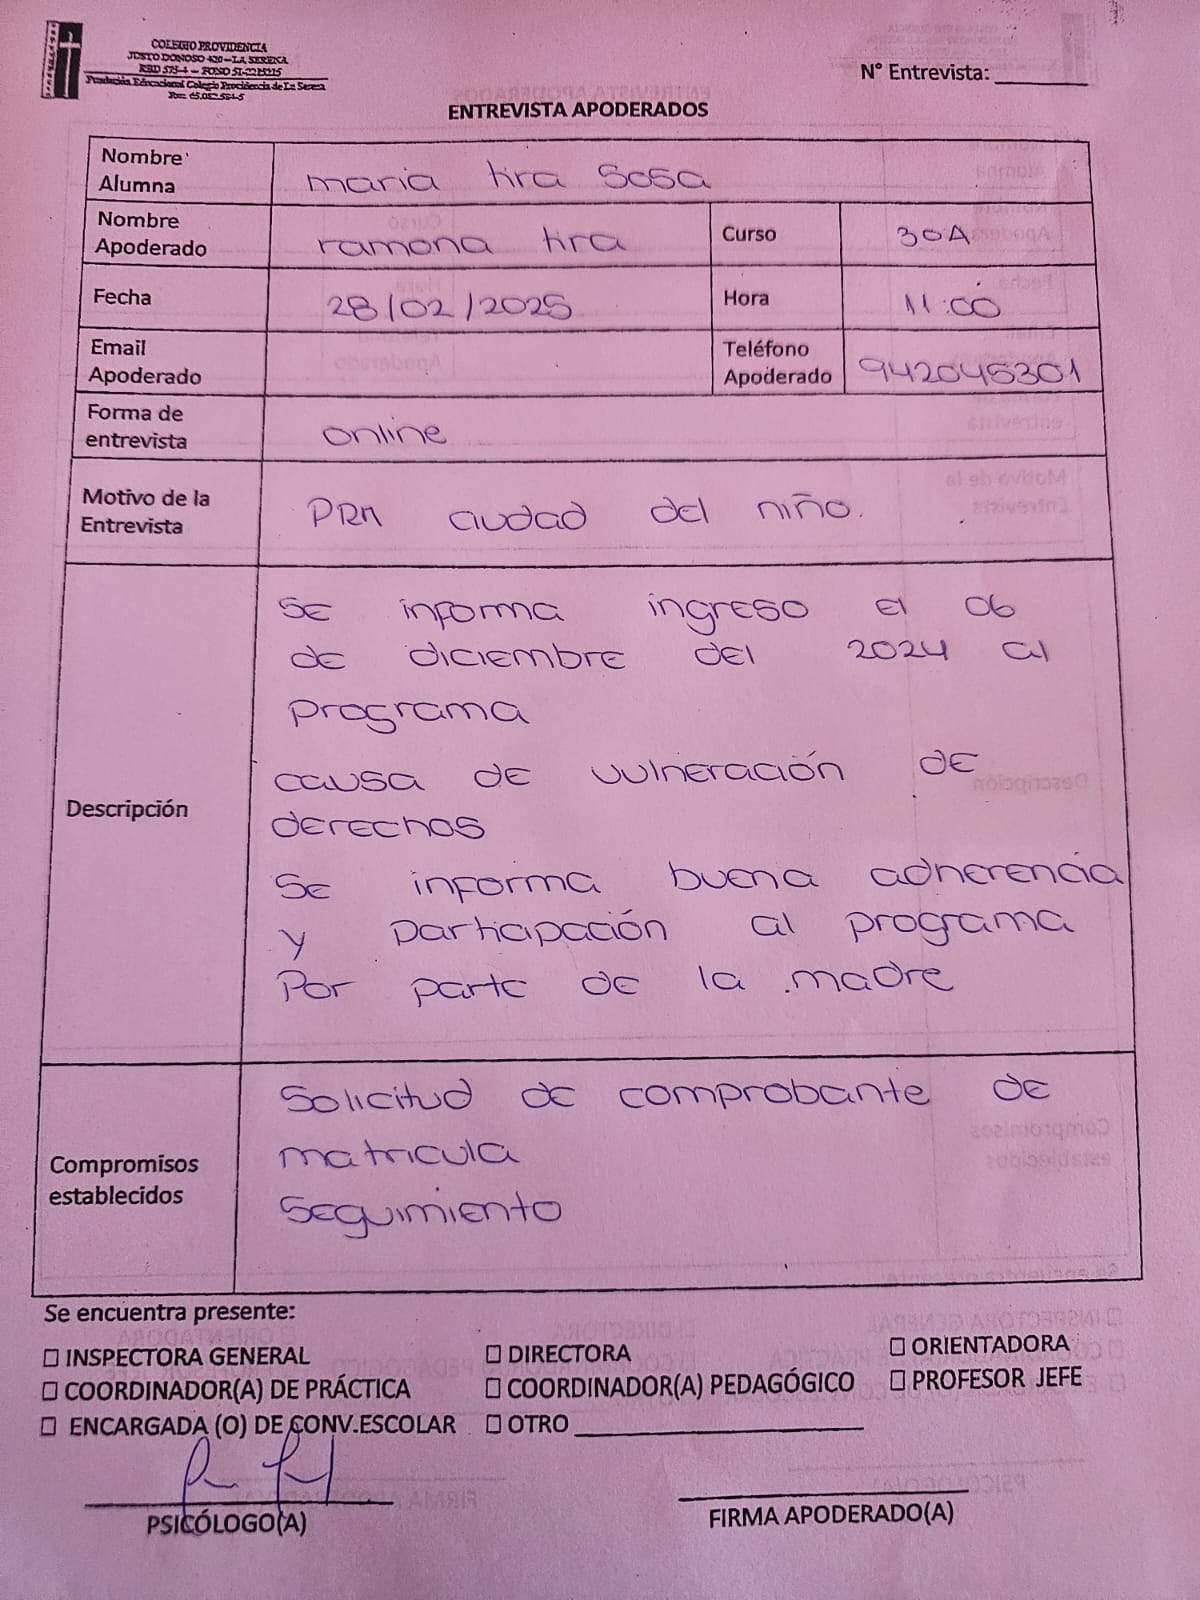 COLEGIO PROVIDENCIA
JUSTO DONOSO 420 – LA SERENA
RBD 575-4 – FONO 51-2215215
Fundación Educacional Colegio Providencia de La Serena
Rut:
N° Entrevista:
ENTREVISTA APODERADOS
Nombre Alumna
maria tira Sosa
Nombre Apoderado
ramona tira
Curso
3oA
Fecha
28/02/2025
Hora
11:00
Email Apoderado
Teléfono Apoderado
942045301
Forma de entrevista
online
Motivo de la Entrevista
PRM ciudad del niño.
Descripción
Se informa ingreso el 06
de diciembre del 2024 al
programa
causa de vulneración de
derechos
Se informa buena adherencia
y participación al programa
Por parte de la madre
Compromisos establecidos
Solicitud de comprobante de
matricula
Seguimiento
Se encuentra presente:
☐ INSPECTORA GENERAL ☐ DIRECTORA ☐ ORIENTADORA
☐ COORDINADOR(A) DE PRÁCTICA ☐ COORDINADOR(A) PEDAGÓGICO ☐ PROFESOR JEFE
☐ ENCARGADA (O) DE CONV.ESCOLAR ☐ OTRO
PSICÓLOGO(A)
FIRMA APODERADO(A)